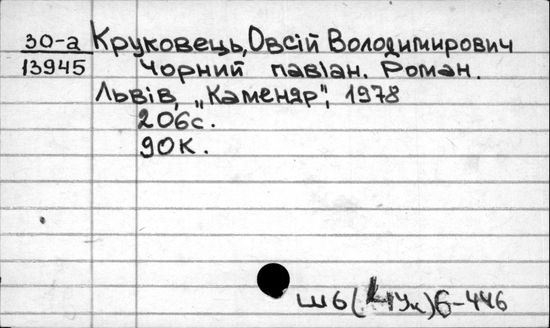 30-а Круковець, Овсій Володимирович
13945 Чорний павіан. Роман.
Львів, „Каменяр", 1978
206с.
90к.
Ш6( 4Ук)6-446